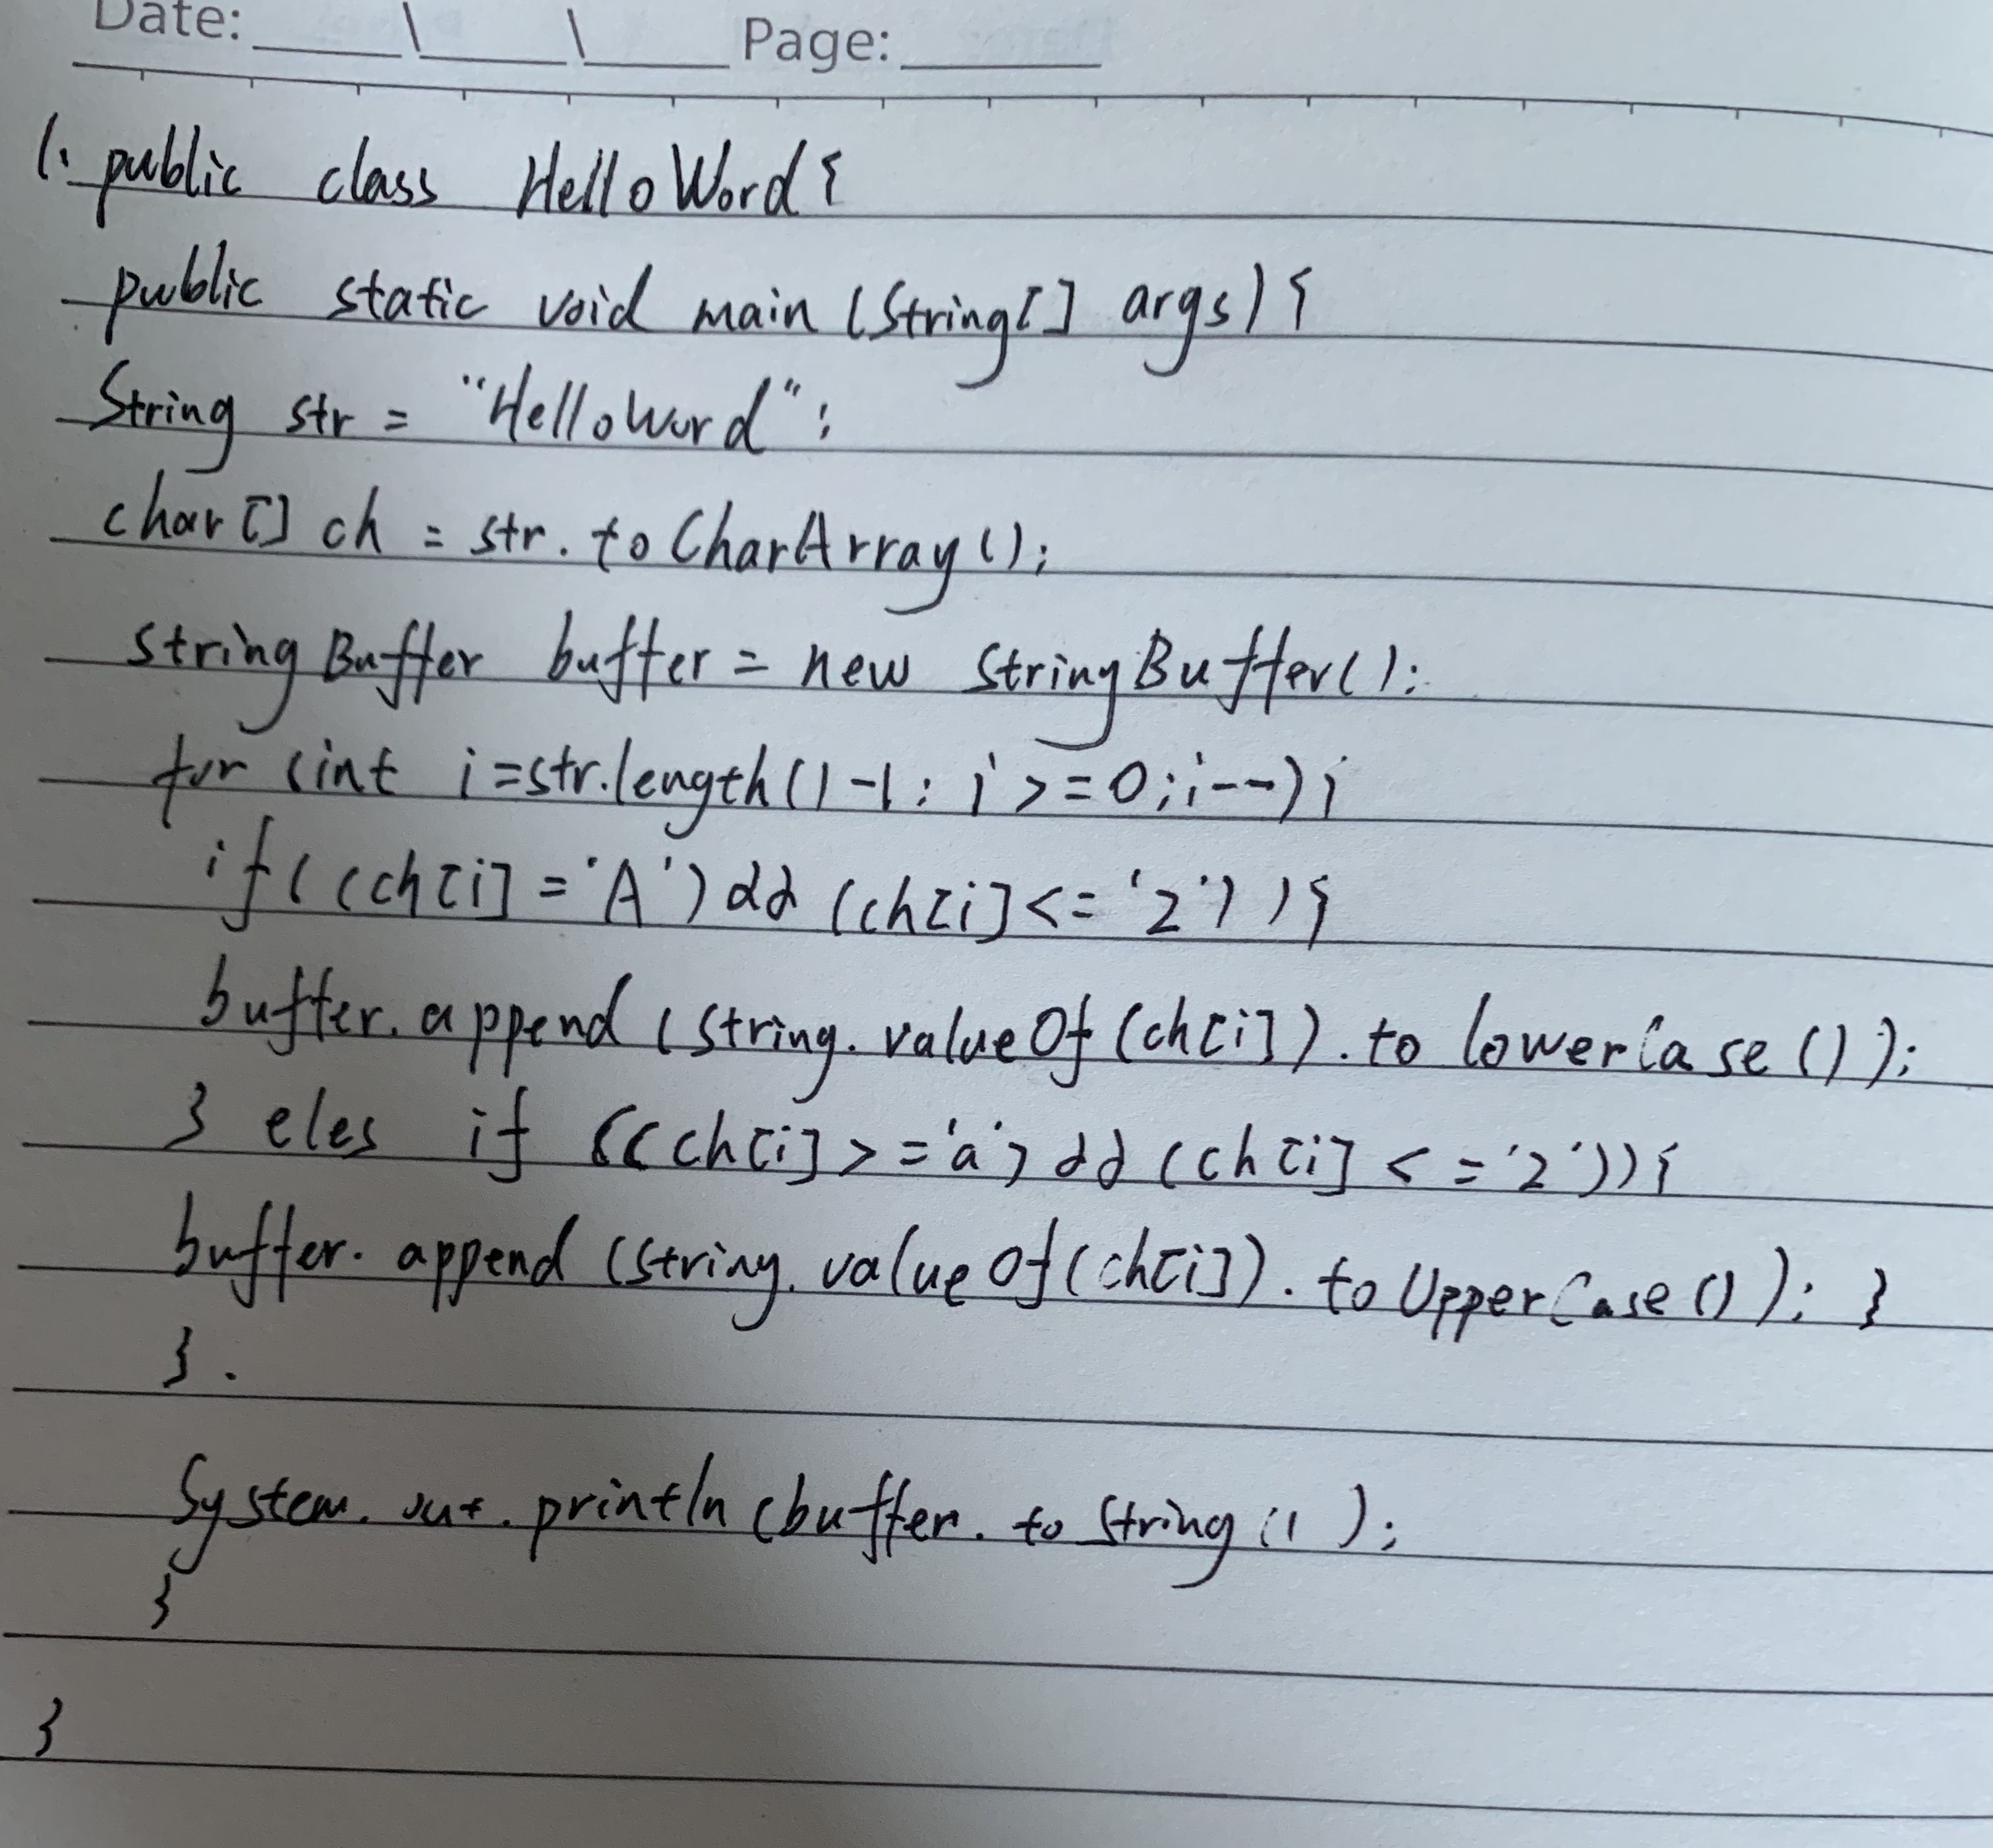 Date: ____\____\____ Page: ____
1. public class HelloWord {
public static void main (String[] args) {
String str = "HelloWord";
char[] ch = str.toCharArray();
StringBuffer buffer = new StringBuffer();
for (int i=str.length()-1; i>=0; i--) {
if ((ch[i] = 'A') && (ch[i] <= 'Z')) {
buffer.append (String.valueOf(ch[i]).toLowerCase());
} eles if ((ch[i] >= 'a') && (ch[i] <= 'z')) {
buffer.append (String.valueOf(ch[i]).toUpperCase()); }
}.
System.out.println (buffer.toString() );
}
}